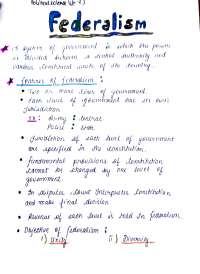 Political science (ch 2)
Federalism
A system of government in which the power
is divided between a central authority and
various constituent units of the country.
Features of federalism :
Two or more levels of government.
Each level of government has its own
jurisdiction
Ex : Army : central
Police : state
Jurisdiction of each level of government
are specified in the constitution.
Fundamental provisions of constitution
cannot be changed by one level of
government.
In disputes, court interpretes constitution
and make final decision
Revenue of each level is told in federalism
Objective of federalism :
i) Unity ii) Diversity